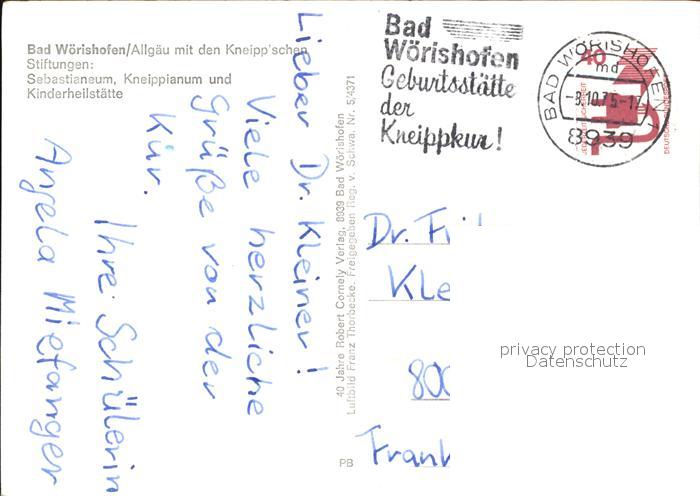 Bad Wörishofen/Allgäu mit den Kneipp'schen
Stiftungen:
Sebastianeum, Kneippianum und
Kinderheilstätte
Lieber Dr. Kleiner!
Viele herzliche
Grüße von der
Kur.
Ihre Schülerin
Angela
40 Jahre Robert Cornely Verlag, 8939 Bad Wörishofen
Luftbild Franz Thorbecke. Freigegeben Reg. v. Schwa. Nr. 5/4371
PB
Bad
Wörishofen
Geburtsstätte
der
Kneippkur!
BAD WÖRISHOFEN 1
md
-3.10.75-17
8939
40
Dr.
Kle
800
Frank
privacy protection
Datenschutz